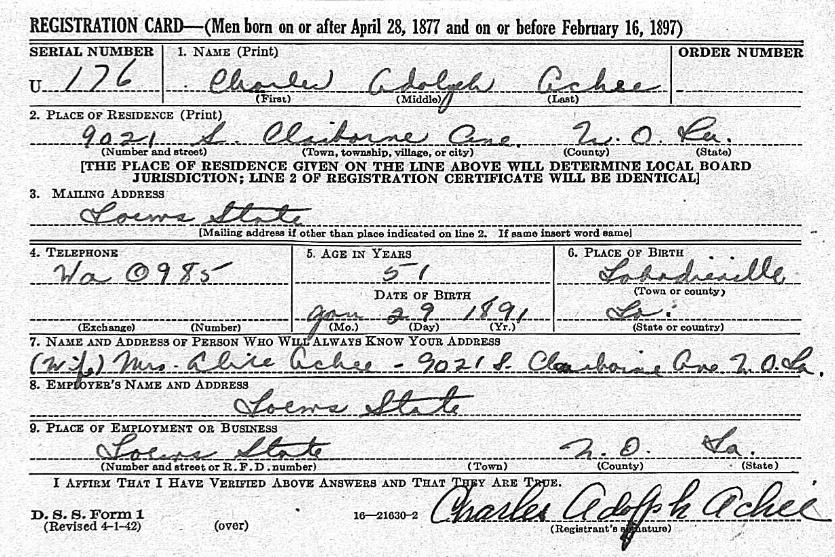 REGISTRATION CARD—(Men born on or after April 28, 1877 and on or before February 16, 1897)
SERIAL NUMBER 1. NAME (Print) ORDER NUMBER
U 176 Charles Adolph Achee
(First) (Middle) (Last)
2. PLACE OF RESIDENCE (Print)
9021 S. Claiborne Ave. N. O. La.
(Number and street) (Town, township, village, or city) (County) (State)
[THE PLACE OF RESIDENCE GIVEN ON THE LINE ABOVE WILL DETERMINE LOCAL BOARD
JURISDICTION; LINE 2 OF REGISTRATION CERTIFICATE WILL BE IDENTICAL]
3. MAILING ADDRESS
Loews State
[Mailing address if other than place indicated on line 2. If same insert word same]
4. TELEPHONE 5. AGE IN YEARS 6. PLACE OF BIRTH
Wa 0985 51 Labadieville
DATE OF BIRTH (Town or county)
Jan 29 1891 La.
(Exchange) (Number) (Mo.) (Day) (Yr.) (State or country)
7. NAME AND ADDRESS OF PERSON WHO WILL ALWAYS KNOW YOUR ADDRESS
(Wife) Mrs. Alice Achee - 9021 S. Claiborne Ave N.O. La.
8. EMPLOYER'S NAME AND ADDRESS
Loews State
9. PLACE OF EMPLOYMENT OR BUSINESS
Loews State N. O. La.
(Number and street or R. F. D. number) (Town) (County) (State)
I AFFIRM THAT I HAVE VERIFIED ABOVE ANSWERS AND THAT THEY ARE TRUE.
D. S. S. Form 1
(Revised 4-1-42) (over) 16—21630-2 Charles Adolph Achee
(Registrant's signature)